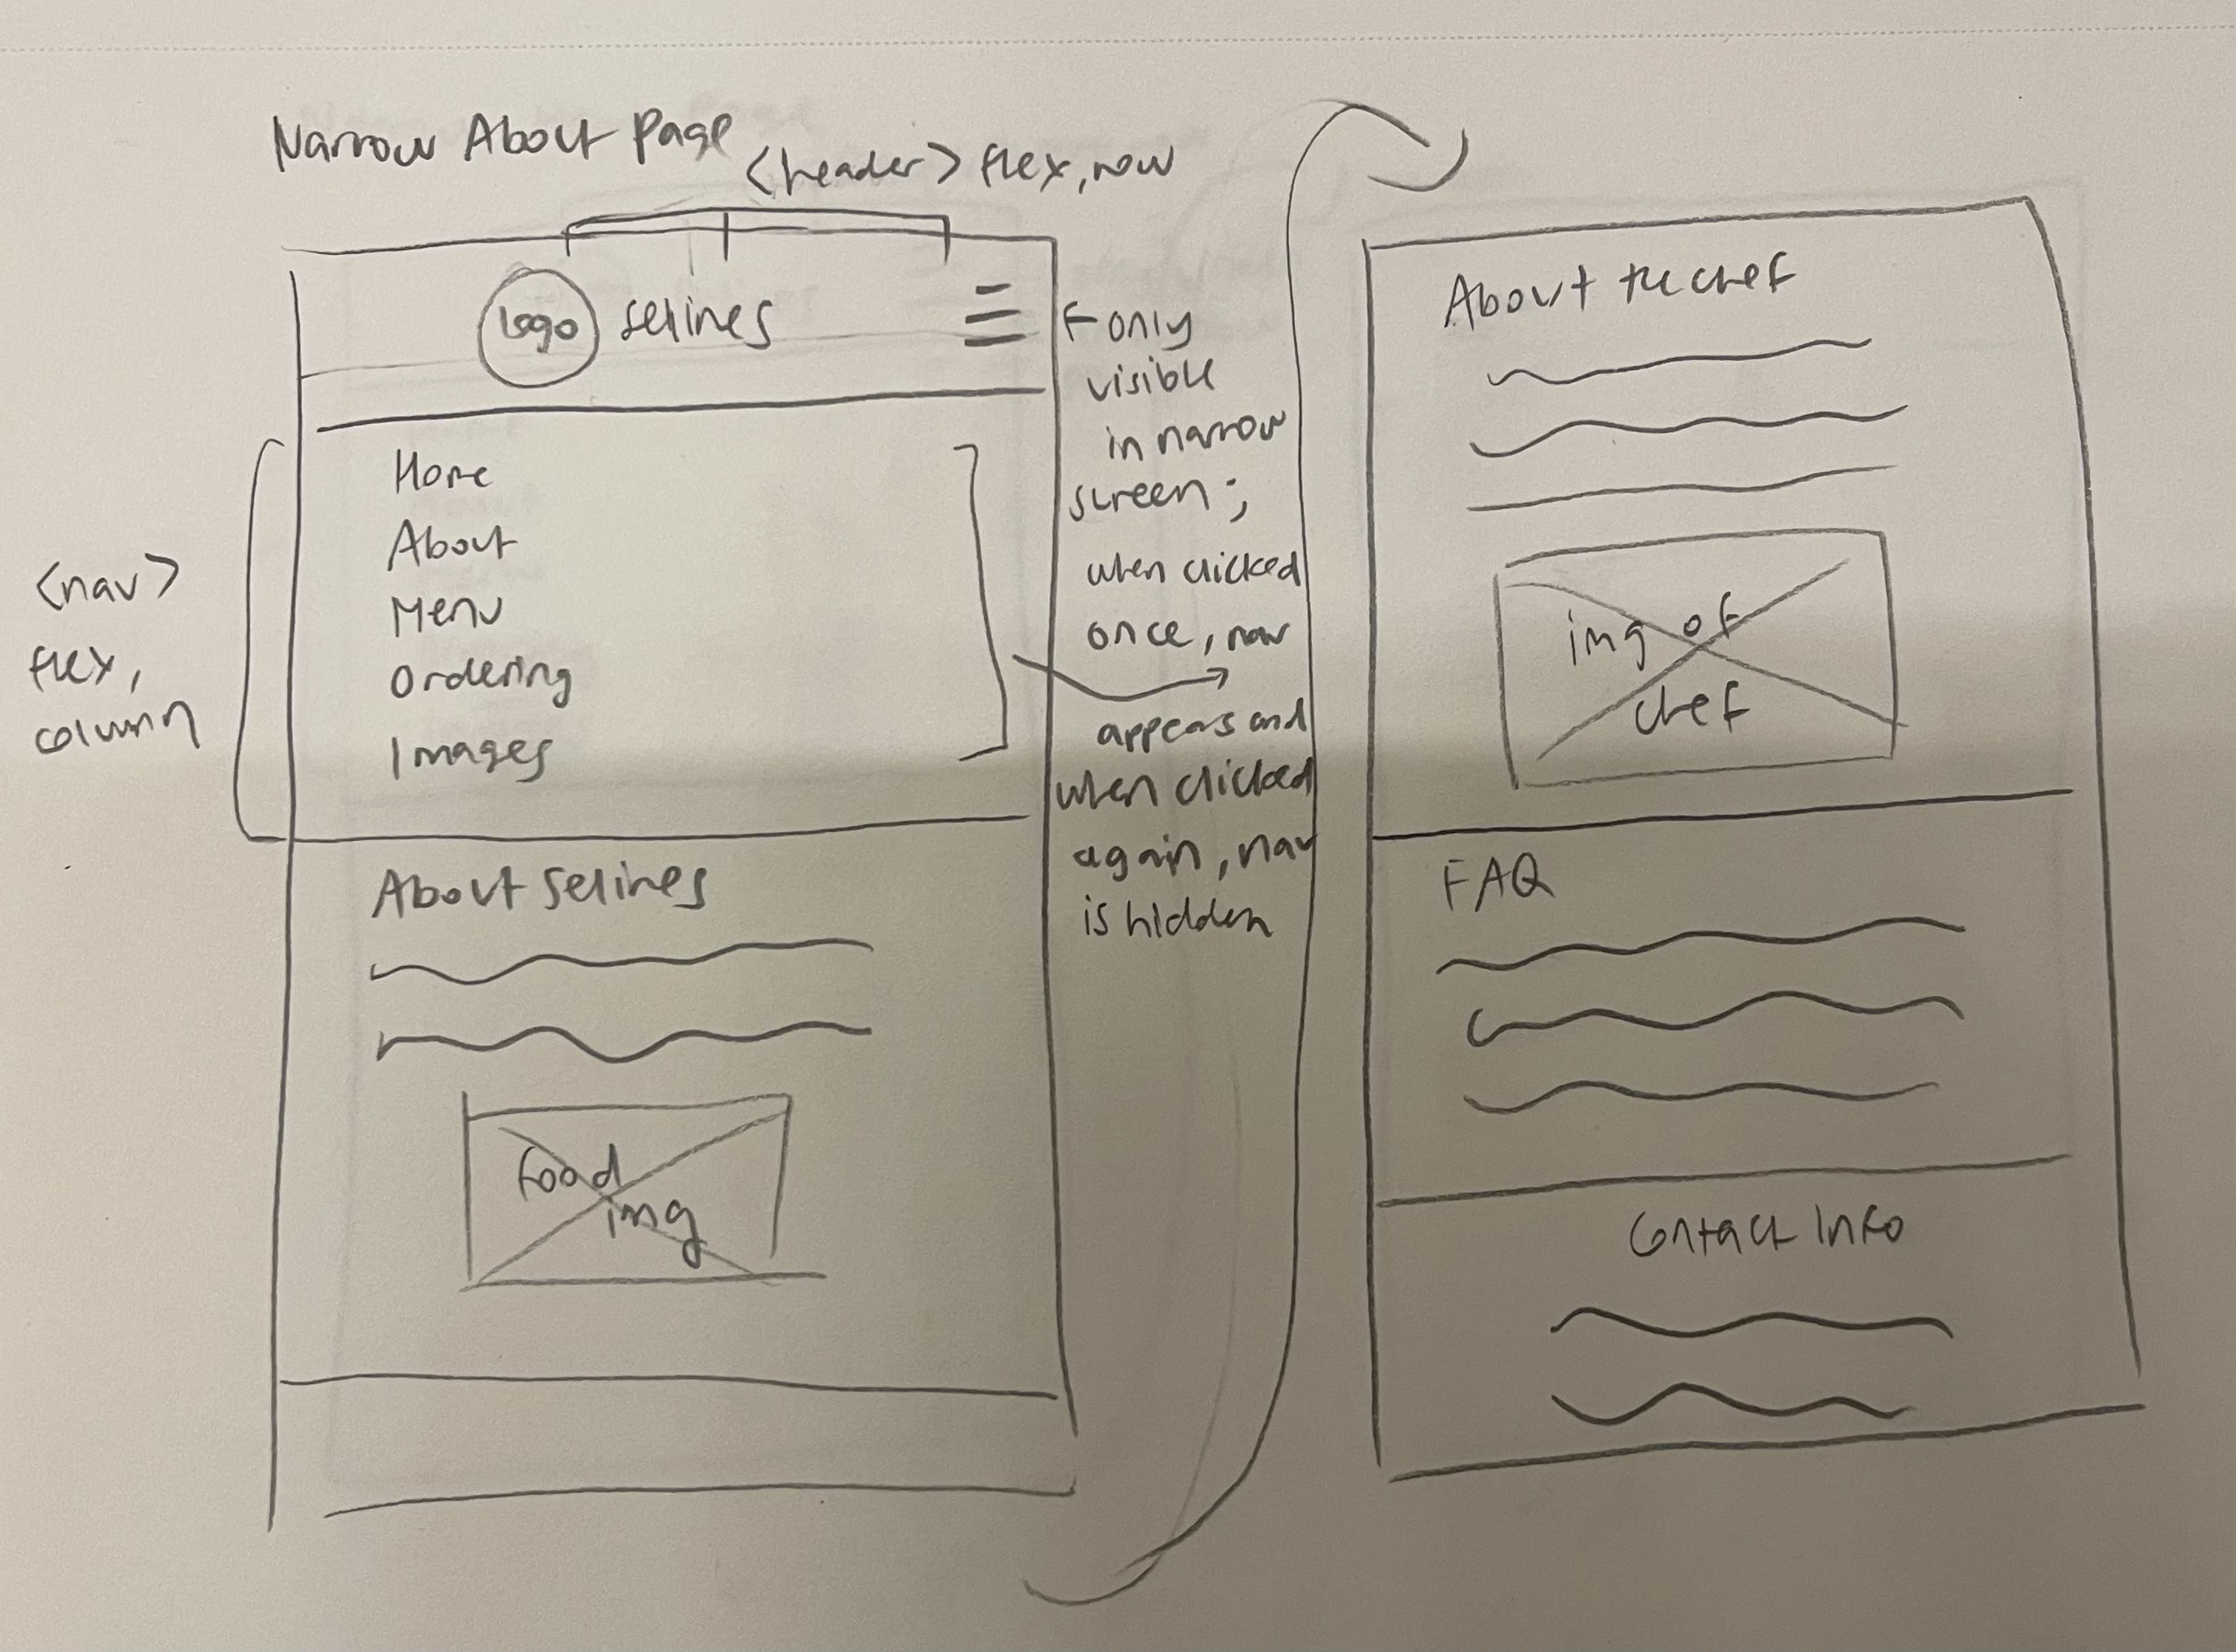 Narrow About Page
<header> flex, row
logo
selines
← only
visible
in narrow
screen;
when clicked
once, nav
appears and
when clicked
again, nav
is hidden
<nav>
flex,
column
Home
About
Menu
Ordering
Images
About selines
food
img
About the chef
img of
chef
FAQ
Contact Info